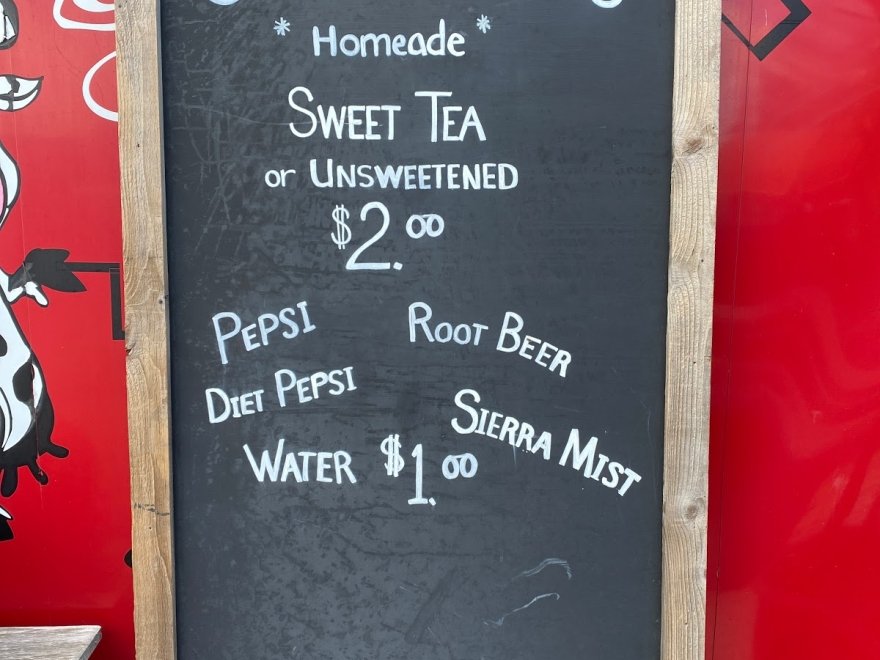 * Homeade *
SWEET TEA
or UNSWEETENED
$2.00
PEPSI
ROOT BEER
DIET PEPSI
SIERRA MIST
WATER $1.00